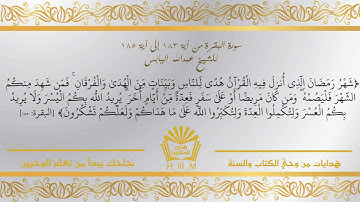 سورة البقرة من آية ١٨٣ إلى آية ١٨٥
للشيخ عبدالله
﴿شَهْرُ رَمَضَانَ الَّذِي أُنزِلَ فِيهِ الْقُرْآنُ هُدًى لِّلنَّاسِ وَبَيِّنَاتٍ مِّنَ الْهُدَىٰ وَالْفُرْقَانِ ۚ فَمَن شَهِدَ مِنكُمُ
الشَّهْرَ فَلْيَصُمْهُ ۖ وَمَن كَانَ مَرِيضًا أَوْ عَلَىٰ سَفَرٍ فَعِدَّةٌ مِّنْ أَيَّامٍ أُخَرَ ۗ يُرِيدُ اللَّهُ بِكُمُ الْيُسْرَ وَلَا يُرِيدُ
بِكُمُ الْعُسْرَ وَلِتُكْمِلُوا الْعِدَّةَ وَلِتُكَبِّرُوا اللَّهَ عَلَىٰ مَا هَدَاكُمْ وَلَعَلَّكُمْ تَشْكُرُونَ﴾ (البقرة:
هدايات من وحي الكتاب والسنة
H_lll_M
نجاحك يبدأ من تعلم الوحيين